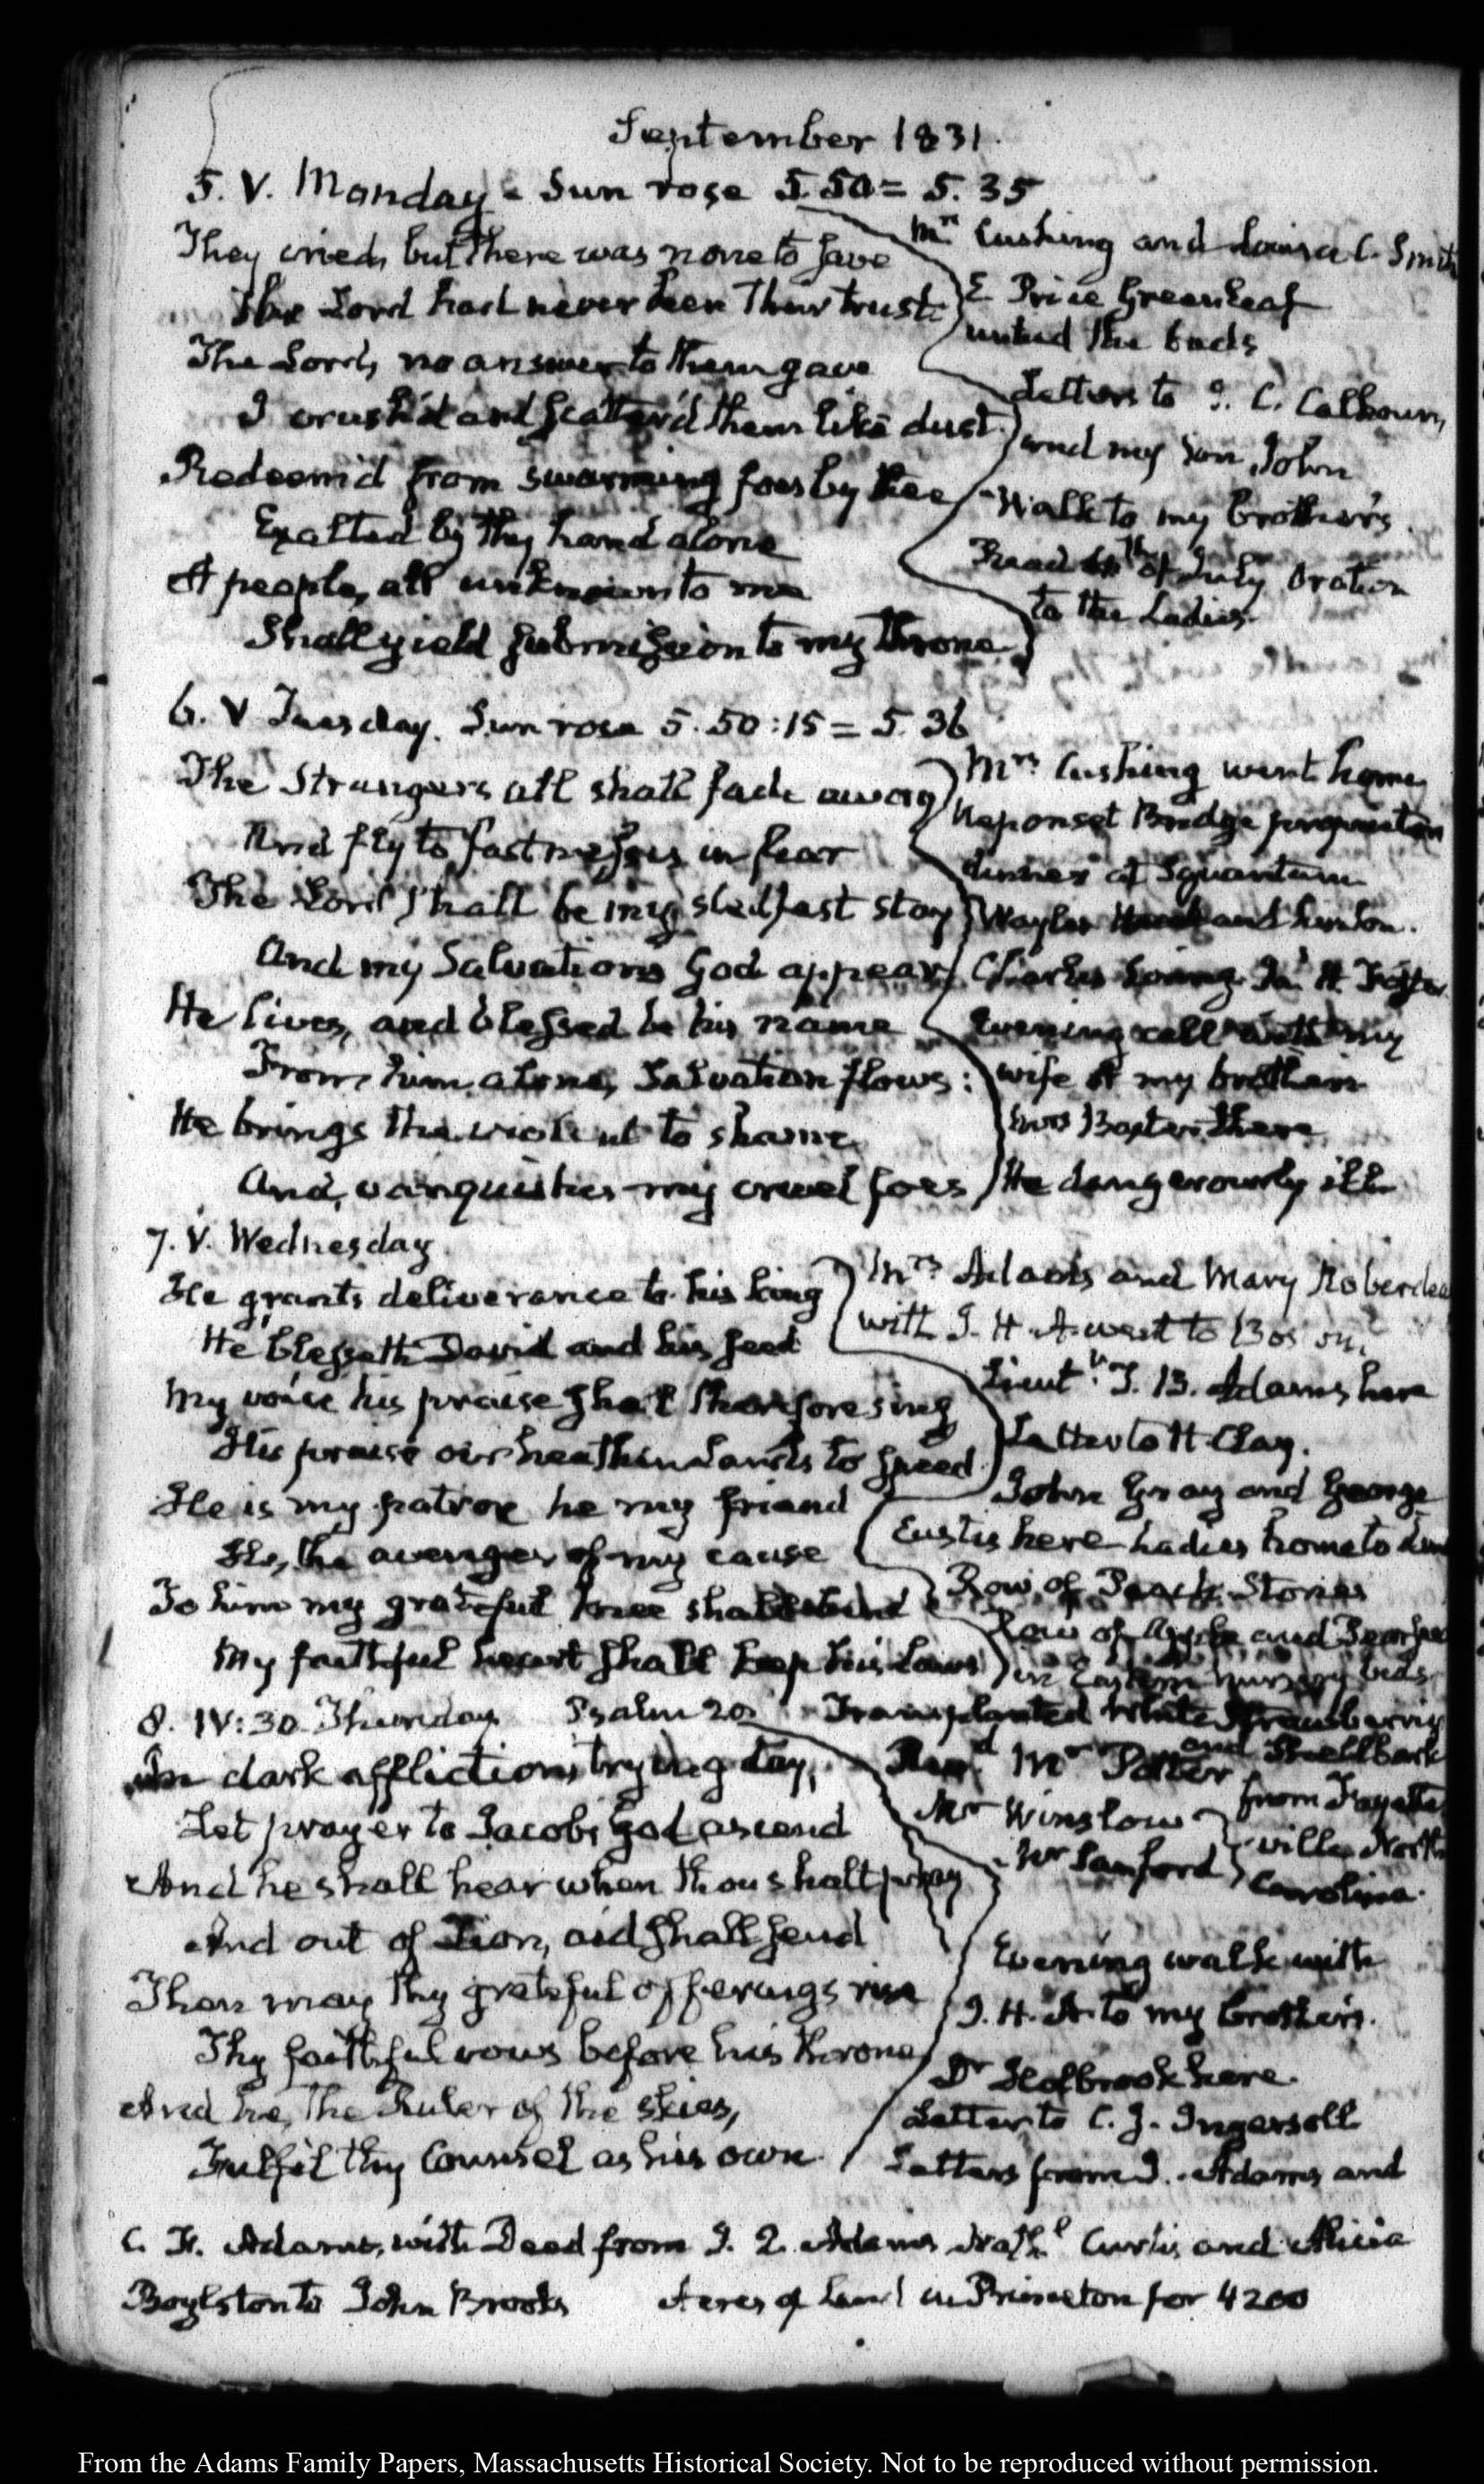 September 1831.
5. V. Monday. Sun rose 5.50 = 5.35
They cried, but there was none to save
The Lord had never been their trust.
The Lord, no answer to them gave
I crush'd and scatter'd them like dust.
Redeem'd from swarming foes by thee
Exalted by thy hand alone
A people, all unknown to me
Shall yield submission to my throne.
Mrs Cushing and Louisa C. Smith
E Price Greenleaf
visited the beds
Letters to J. C. Calhoun,
and my Son John
Walk to my brother's
Read 4th of July Oration
to the Ladies.
6. V Tuesday. Sun rose 5.50:15 = 5.36
The Strangers all shall fade away
And fly to fastnesses in fear
The Lord shall be my stedfast stay
And my Salvation's God appear,
He lives, and blessed be his name
From him alone, Salvation flows:
He brings the violent to shame
And, vanquishes my cruel foes
Mrs Cushing went home
Neponset Bridge
dinner at Squantum
and
Charles
Evening call with my
wife at my brother's
Mrs Baxter there
He dangerously ill
7. V. Wednesday
He grants deliverance to his king
He blesseth David and his seed
My voice his praise shall therefore sing
His praise o'er heathen Lands to speed
He is my patron he my friend
He, the avenger of my cause
To him my grateful knee shall bend
My faithful heart shall keep his Laws
Mrs Adams and Mary Roberdeau
with I. H. A. went to Boston,
Lieut. T. B. Adams here
Letter to H. Clay.
John Gray and George
Eustis here Ladies home to din
Row of Peach Stones
Row of Apple and
in Eastern nursery beds
8. IV:30 Thursday Psalm 20. Transplanted White Strawberries
In dark affliction's trying day,
Let prayer to Jacob's God ascend
And he shall hear when thou shalt pray
And out of Zion, aid shall send
Then may thy grateful offerings rise
Thy faithful vows before his throne
And he, the Ruler of the skies,
Fulfil thy Counsel as his own.
and Shellbark
Revd Mr Potter
Mr Winslow
Mr Sanford
from Fayette
ville North
Carolina.
Evening walk with
I. H. A. to my brother's.
Dr Holbrook here.
Letter to C. J. Ingersoll
Letters from J. Adams and
C. F. Adams, with Deed from J. Q. Adams Nathl Curtis and Alicia
Boylston to John Brooks Acres of Land in Princeton for 4200
From the Adams Family Papers, Massachusetts Historical Society. Not to be reproduced without permission.